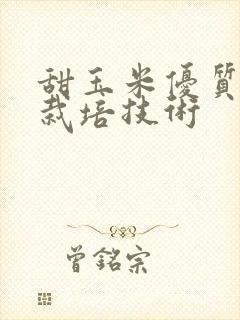 甜玉米優質
栽培技術
曾銘宗